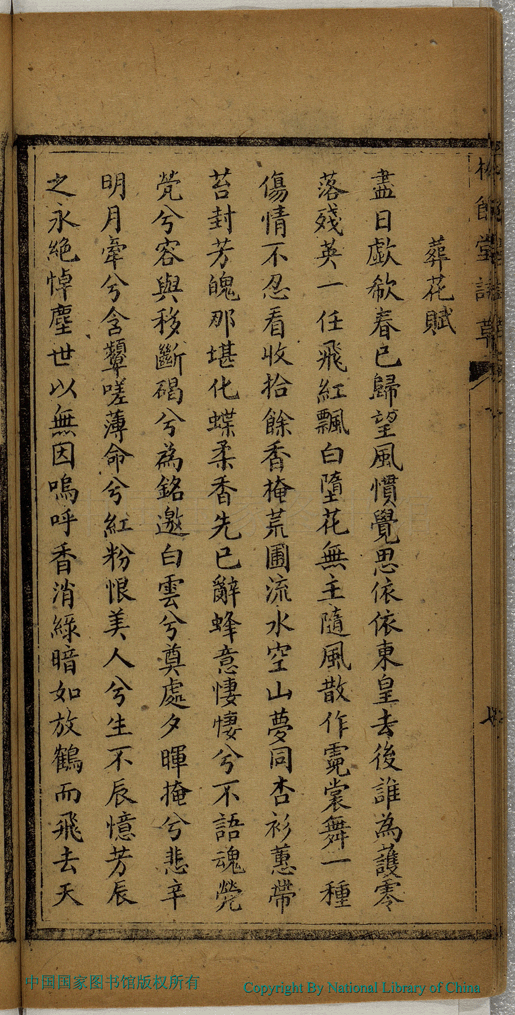 葬花賦
盡日歔欷春已歸望風慣覺思依依東皇去後誰為護零
落殘英一任飛紅飄白墮花無主隨風散作霓裳舞一種
傷情不忍看收拾餘香掩荒圃流水空山夢同杏衫蕙帶
苔封芳魄那堪化蝶柔香先已辭蜂意悽悽兮不語魂煢
煢兮容與移斷碣兮為銘邀白雲兮奠處夕暉掩兮悲辛
明月牽兮含顰嗟薄命兮紅粉恨美人兮生不辰憶芳辰
之永絕悼塵世以無因嗚呼香消綠暗如放鶴而飛去天
中国国家图书馆版权所有
Copyright By National Library of China